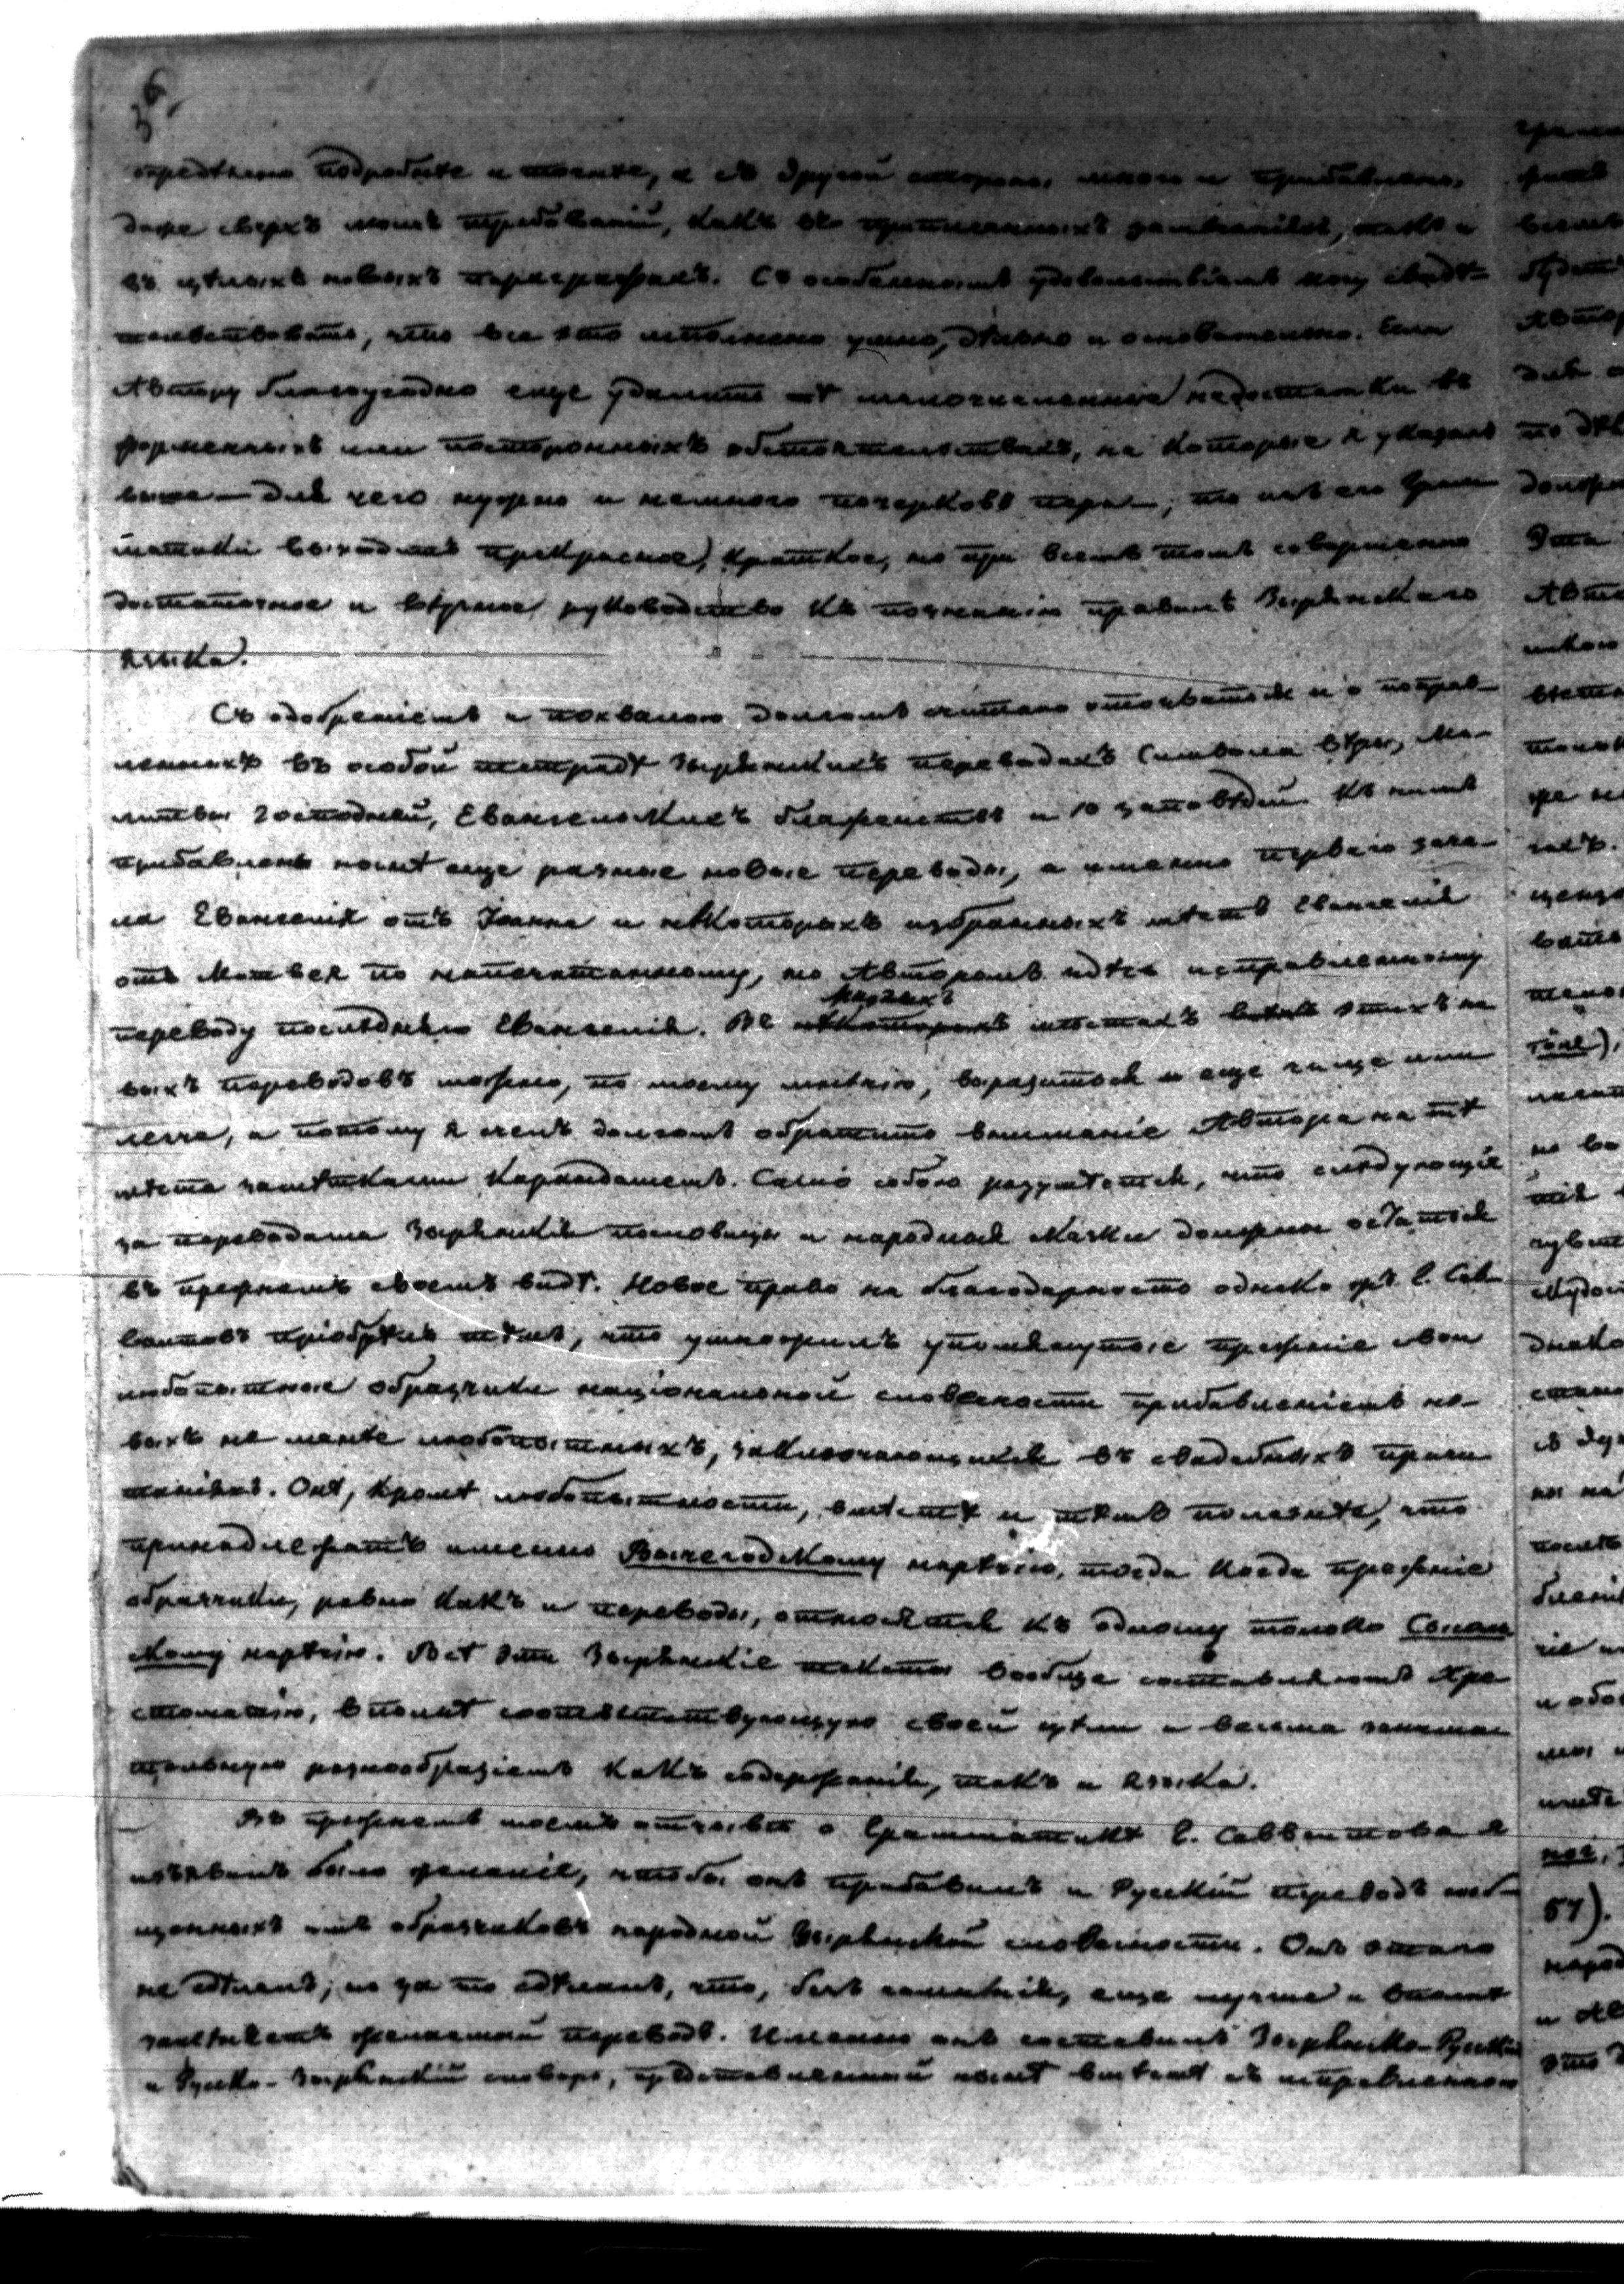 36
определено подробнѣе и точнѣе, а съ другой стороны много и прибавлено,
даже сверхъ моихъ требованій, какъ въ приписанныхъ замѣчаніяхъ, такъ и
въ цѣлыхъ новыхъ параграфахъ. Съ особеннымъ удовольствіемъ могу свидѣ-
тельствовать, что все это исполнено умно, дѣльно и основательно. Если
Автору благоугодно еще удалить тѣ малочисленные недостатки въ
форменныхъ или постороннихъ обстоятельствахъ, на которые я указалъ
выше — для чего нужно и немного почерковъ пера —, то изъ его Грам-
матики выходитъ прекрасное, краткое, но при всемъ томъ совершенно
достаточное и вѣрное руководство къ познанію правилъ Зырянскаго
языка.
Съ одобреніемъ и похвалою долгомъ считаю отозваться и о поправ-
ленныхъ въ особой тетрадѣ Зырянскихъ переводахъ Символа вѣры, Мо-
литвы Господней, Евангельскихъ блаженствъ и 10 заповѣдей. Къ нимъ
прибавлены нынѣ еще разные новые переводы, а именно перваго зача-
ла Евангелія отъ Іоанна и нѣкоторыхъ избранныхъ мѣстъ Евангелія
отъ Матвея по напечатанному, но Авторомъ здѣсь исправленному
переводу послѣдняго Евангелія. Въ иныхъ мѣстахъ этихъ но
выхъ переводовъ можно, по моему мнѣнію, выразиться и еще чище или
легче, а потому я счелъ долгомъ обратить вниманіе Автора на тѣ
мѣста замѣтками карандашемъ. Само собою разумѣется, что слѣдующія
за переводами Зырянскія пословицы и народная сказки должны остаться
въ прежнемъ своемъ видѣ. Новое право на благодарность однако жъ Г. Сав-
ваитовъ пріобрѣлъ тѣмъ, что умножилъ упомянутые прежніе свои
любопытные образчики національной словесности прибавленіемъ но-
выхъ не менѣе любопытныхъ, заключающихся въ свадебныхъ причи
таніяхъ. Онѣ, кромѣ любопытности, вмѣстѣ и тѣмъ полезнѣе, что
принадлежатъ именно Вычегодскому нарѣчію, тогда когда прежніе
образчики, равно какъ и переводы, относятся къ одному только Сысоль
скому нарѣчію. Всѣ эти Зырянскіе тексты вообще составляютъ Хре
стоматію, вполнѣ соотвѣтствующую своей цѣли и весьма занима
тельную разнообразіемъ какъ содержанія, такъ и языка.
Въ прежнемъ моемъ отзывѣ о Грамматикѣ Г. Савваитова я
изъявилъ было желаніе, чтобы онъ прибавилъ и Русскій переводъ сооб-
щенныхъ имъ образчиковъ народной Зырянской словесности. Онъ этаго
не сдѣлалъ; но за то сдѣлалъ, что, безъ сомнѣнія, еще лучше и вполнѣ
замѣняетъ желаемый переводъ. Именно онъ составилъ Зырянско-Русскій
и Русско-Зырянскій словарь, представленный нынѣ вмѣстѣ съ исправленною